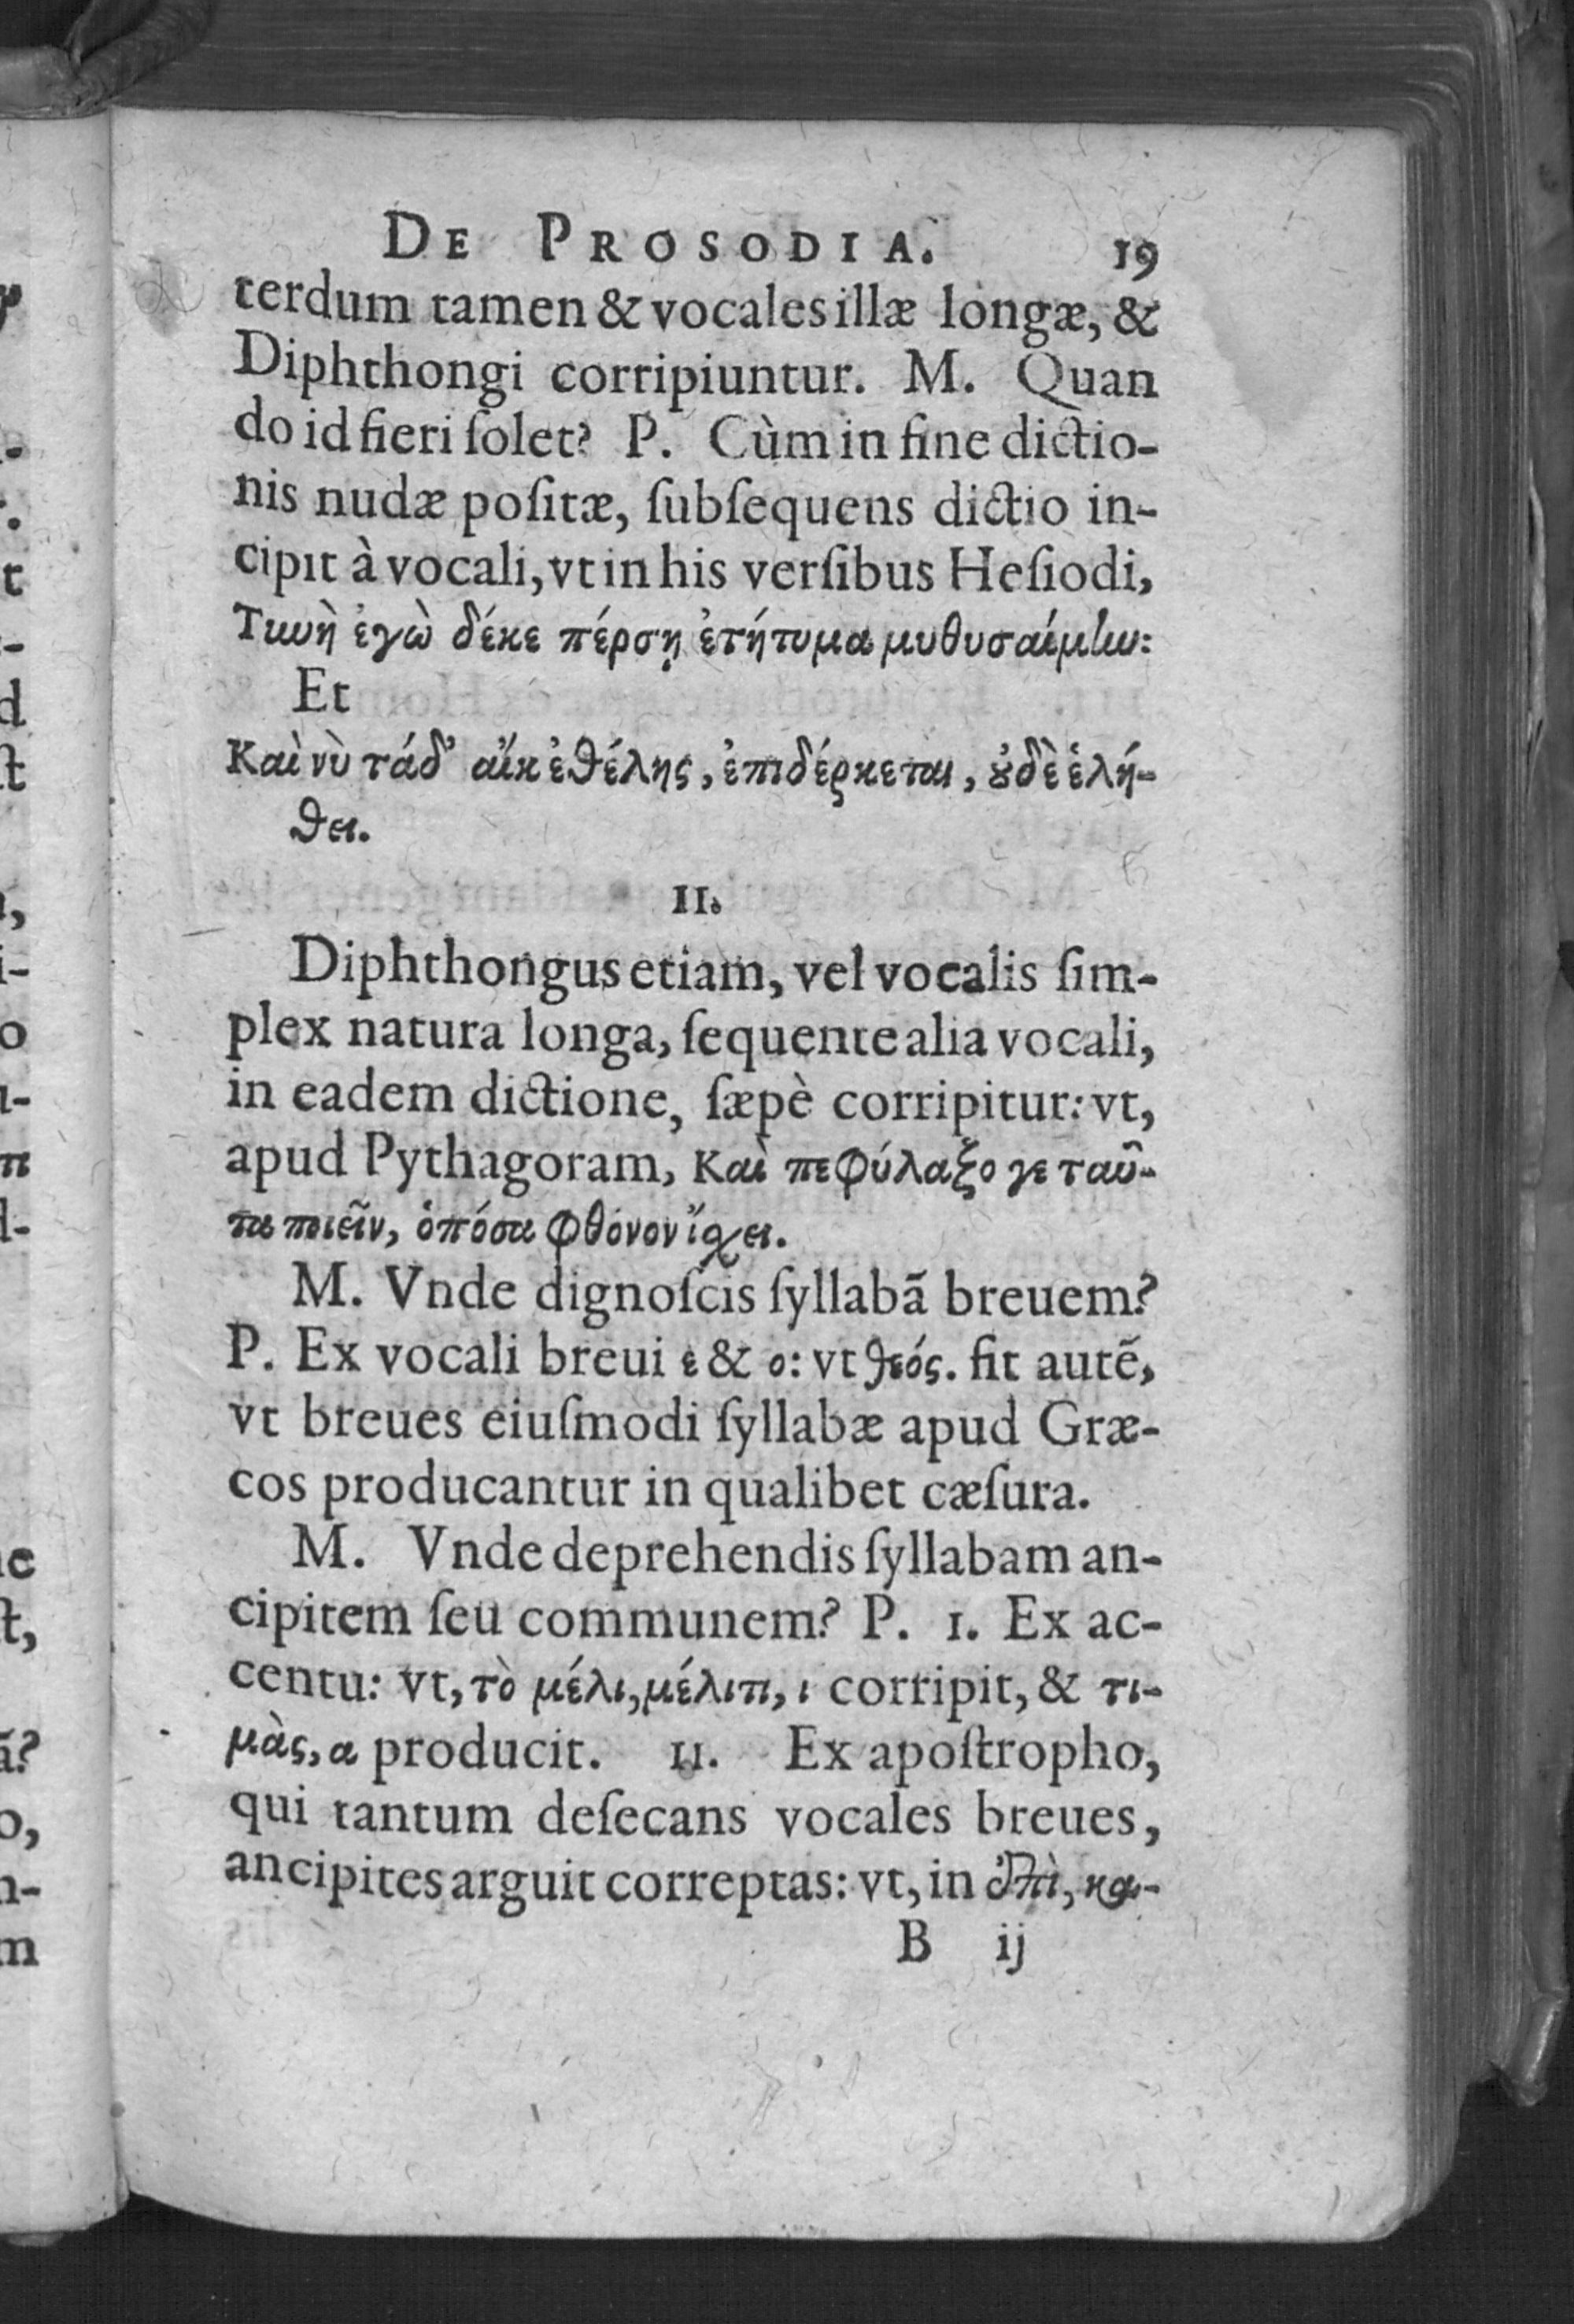 DE PROSODIA. 19
terdum tamen & vocales illæ longæ, &
Diphthongi corripiuntur. M. Quan
do id fieri ſolet? P. Cùm in fine dictio-
nis nudæ poſitæ, ſubſequens dictio in-
cipit à vocali, vt in his verſibus Heſiodi,
Τιωὴ ἐγὼ δέκε πέρσῃ ἐτήτυμα μυθυσαίμlω:
Et
Καὶ νὺ τάδ' αἴκ ἐθέλης, ἐπιδέρκεται, ȣ̓δὲ ἑλή-
θει.
II.
Diphthongus etiam, vel vocalis ſim-
plex natura longa, ſequente alia vocali,
in eadem dictione, ſæpè corripitur: vt,
apud Pythagoram, Καὶ πεφύλαξο γε ταῦ-
τα ποιεῖν, ὁπόσα φθόνον ἴχει.
M. Vnde dignoſcis ſyllabã breuem?
P. Ex vocali breui ε & ο: vt θεός. fit autẽ,
vt breues eiuſmodi ſyllabæ apud Græ-
cos producantur in qualibet cæſura.
M. Vnde deprehendis ſyllabam an-
cipitem ſeu communem? P. I. Ex ac-
centu: vt, τὸ μέλι, μέλιτι, ι corripit, & τι-
μὰς, α producit. II. Ex apoſtropho,
qui tantum deſecans vocales breues,
ancipites arguit correptas: vt, in ἐπὶ, κα-
B ij